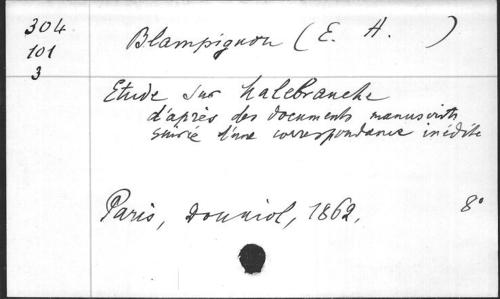 304
101
3
Blampignon (E. A. )
Etude sur Malebranche
d'après des documents manuscrits
suivie d'une correspondance inédite
Paris, Douniol, 1862. 8°